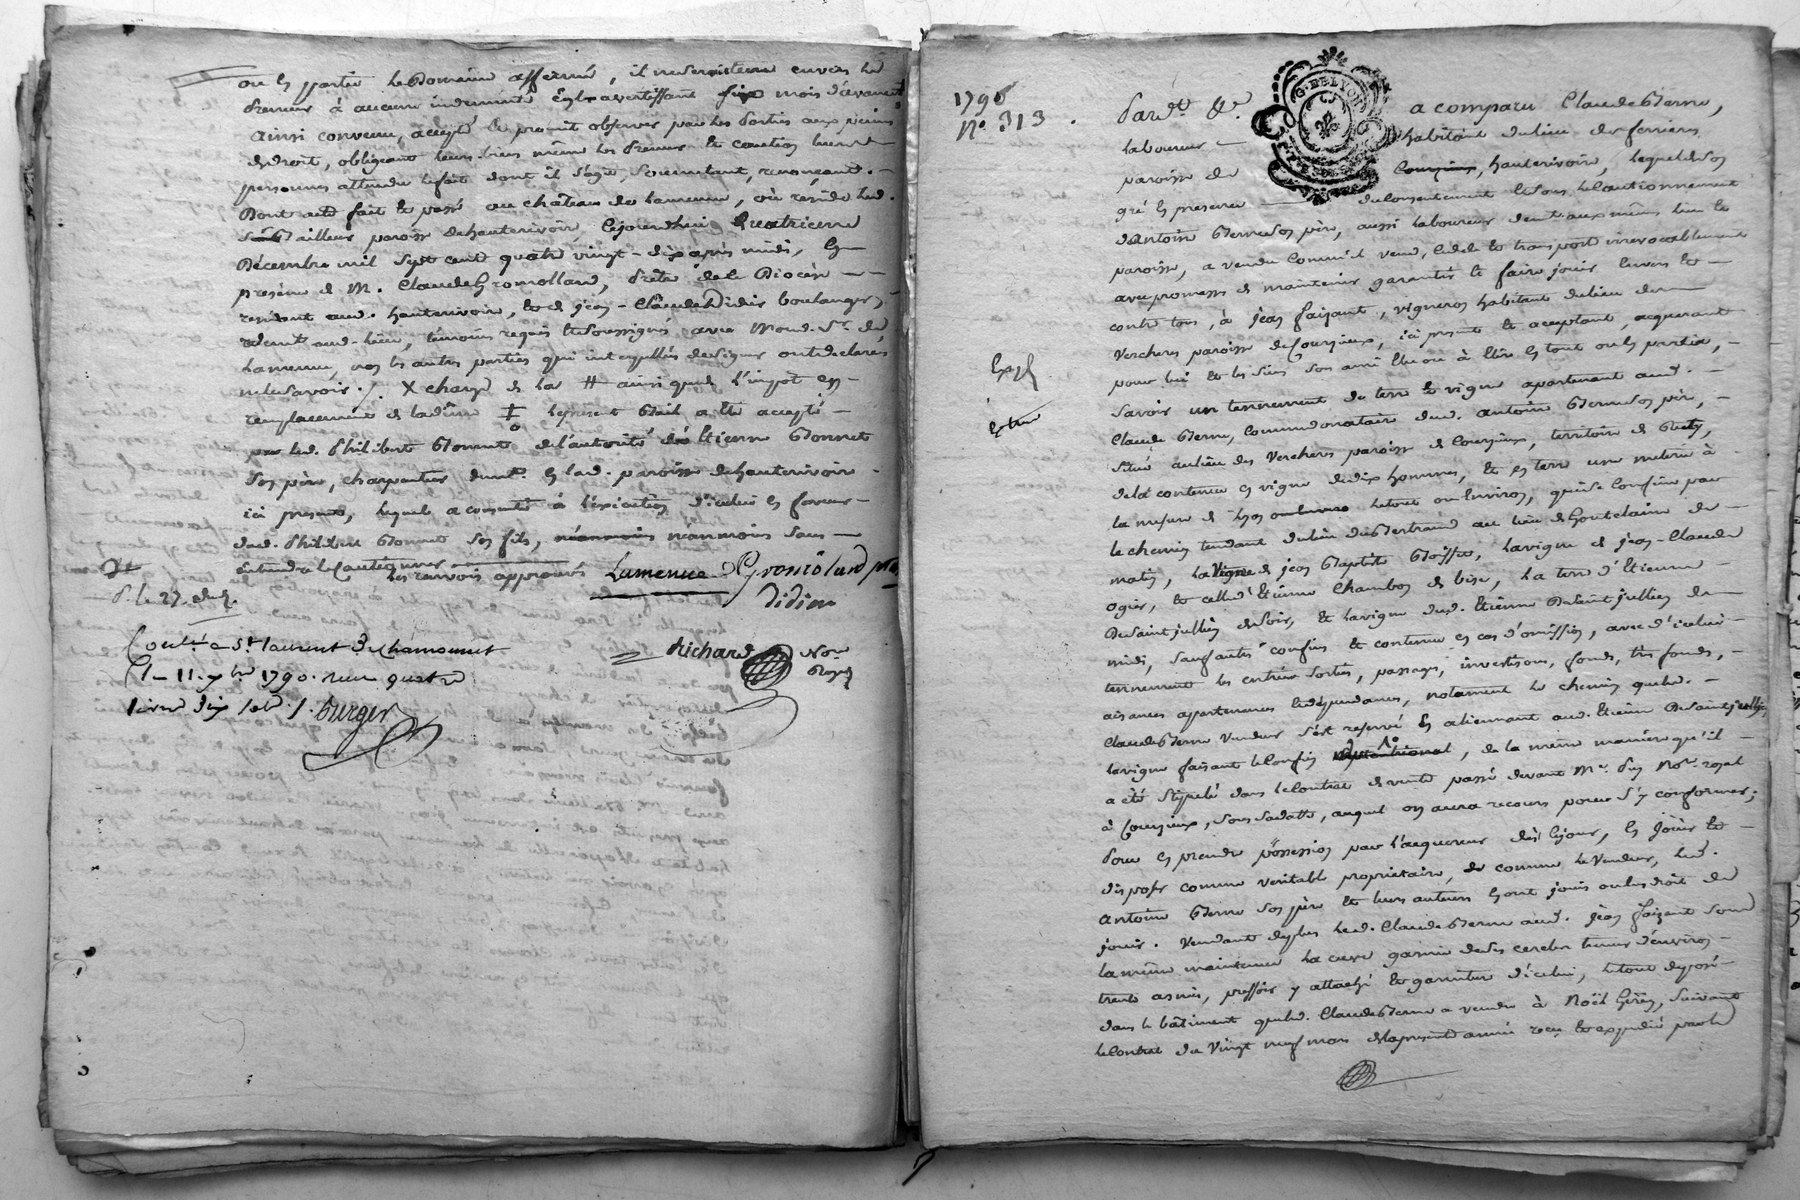 ou en partie le domaine affermé, il ne sera tenu envers le
preneur à aucune indemnité en l'avertissant six mois d'avance
ainsi convenu, accepté et promis observer par les parties aux peines
de droit, obligeant leurs biens même les preneur et caution leurs
personnes attendu le fait dont il s'agit, soumettant, renonçant. -
Dont acte fait et passé au château de Lamenue, où réside led.
Sr. Bailleur paroisse de hauterivoire, cejourd'hui quatrieme
Décembre mil sept cent quatre vingt-dix après midi, En
présence de M. Claude Gromolland, prêtre de ce Diocèse
résident aud. hauterivoire, et de jean-Claude Didier boulanger,
demt. aud. lieu, témoins requis et soussignés avec Mond. Sr. de
Lamenue, non les autres parties qui interpellées de signer ont declarés
ne le savoir ./. X charge de lad # ainsi que de l'impôt en
remplacement de la dîme ‡ le present Bail a été accepté
par led. Philibert Bonnet de l'autorité de Etienne Bonnet
son père, charpentier demt. en lad. paroisse de hauterivoire
ici présent, lequel a consenti à l'exécution d'icelui en faveur
dud. Philibert Bonnet son fils, néanmoins sans
entendre le cautionner
les renvois approuvés Lamenue Gromolland ptre
Didier
P. le 27. Xbre
Conlé. a St. laurent De Chamousset
Le 11. xbre 1790. reçu quatre
livres dix sols ./. burger
Richard Nore
Royal
1790
No. 313.
Pardt. &a. a comparu Claude Berne,
G. DE LYON
laboureur habitant du lieu des ferrieres
paroisse de hauterivoire, lequel de son
gré en presence du consentement et sous le cautionnement
d'antoine Berne son père, aussi laboureur demt. aux mêmes lieu et
paroisse, a vendu comme il vend, cede et transporte irrevocablement
avec promesse de maintenir garantir et faire jouir envers et
contre tous, à jean faizant, vigneron habitant du lieu des
Vercheres paroisse de Courzieux, ici présent et acceptant, acquerant
pour lui et les siens son ami élu ou à élire en tout ou en partie, -
Expé
Extrait
Savoir un tennement de terre et vigne apartenant aud. -
Claude Berne, comme donataire dud. antoine Berne son père, -
situé au lieu des Vercheres paroisse de Courzieux, territoire de
de la contenue en vigne de dix hommes, et en terre une meterée à
la mesure de Lyon le tout ou environ, qui se confine par
le chemin tendant du lieu du Bertrand au lieu de Goutclaire de
matin, la Vigne de jean Baptiste Boisset, la vigne de jean-Claude
ogier, et celle d'Etienne Chambon de bise, la terre d'Etienne
Desaintjullien de soir, et la vigne dud. Etienne Desaintjullien de
midi, sauf autres confins et contenue en cas d'omission, avec d'icelui
tennement les entrées sorties, passages, investisons, fonds, très fonds, -
aisances appartenances et dependances, notament le chemin que led. -
Claude Berne vendeur s'est reservé en alienant aud. Etienne Desaintjullien
la vigne faisant le confin, de la même manière qu'il -
a été stipulé dans le contrat de vente passé devant Me. Puy Nore. royal
à Courzieux, sous sa datte, auquel on aura recours pour s'y conformer;
Pour en prendre possession par l'acquereur dès cejour, en jouir et
disposer comme veritable proprietaire, et comme le Vendeur, led.
antoine Berne son père et leurs auteurs en ont joui ou eu droit de
jouir. Vendant de plus led. Claude Berne aud. jean faizant sous
la même maintenue la cuve garnie de ses cercles tenue d'environ
trente asnées, pressoir y attaché et garniture d'icelui, le tout deposé
dans le bâtiment que led. Claude Berne a vendu à Noël Gerin, suivant
le contrat du Vingt neuf mars de la presente année reçu et expedié par le